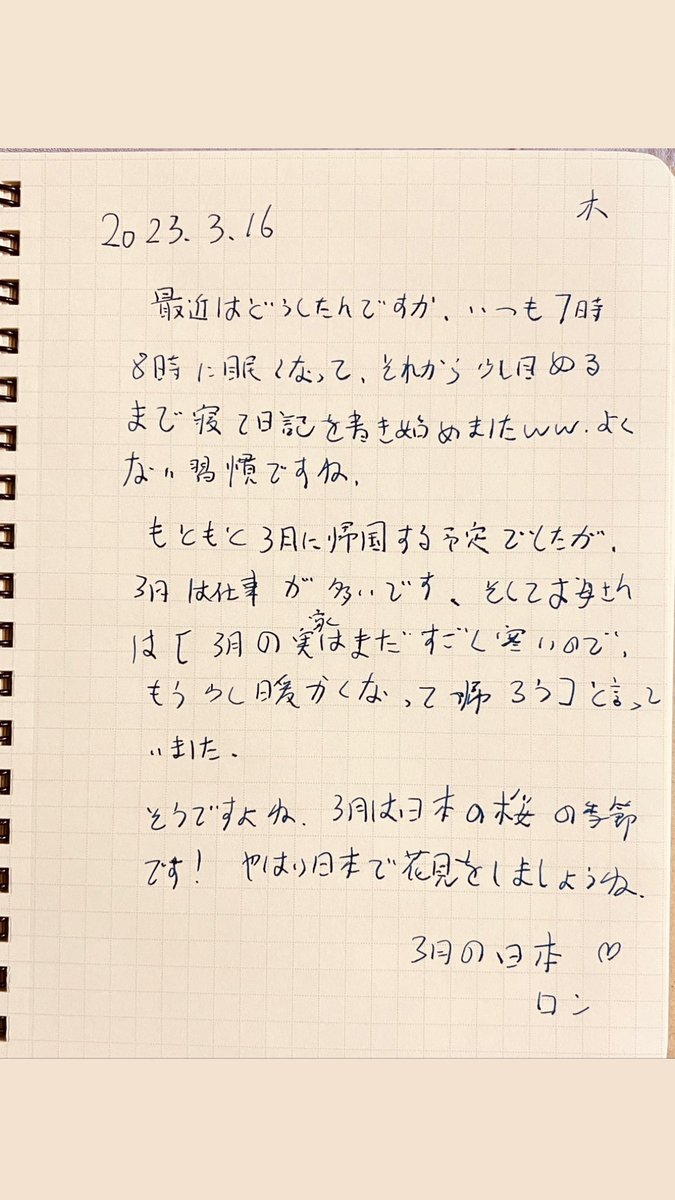 2023.3.16 木
最近はどうしたんですか、いつも7時
8時に眠くなって、それから少し目める
まで寝て日記を書き始めましたww.よく
ない習慣ですね、
もともと3月に帰国する予定でしたが、
3月は仕事が多いです、そしてお母さん
は「3月の実家はまだすごく寒いので、
もう少し暖かくなって帰ろう」と言って
いました.
そうですよね、3月は日本の桜の季節
です! やはり日本で花見をしましょうね、
3月の日本 ♡
ロン